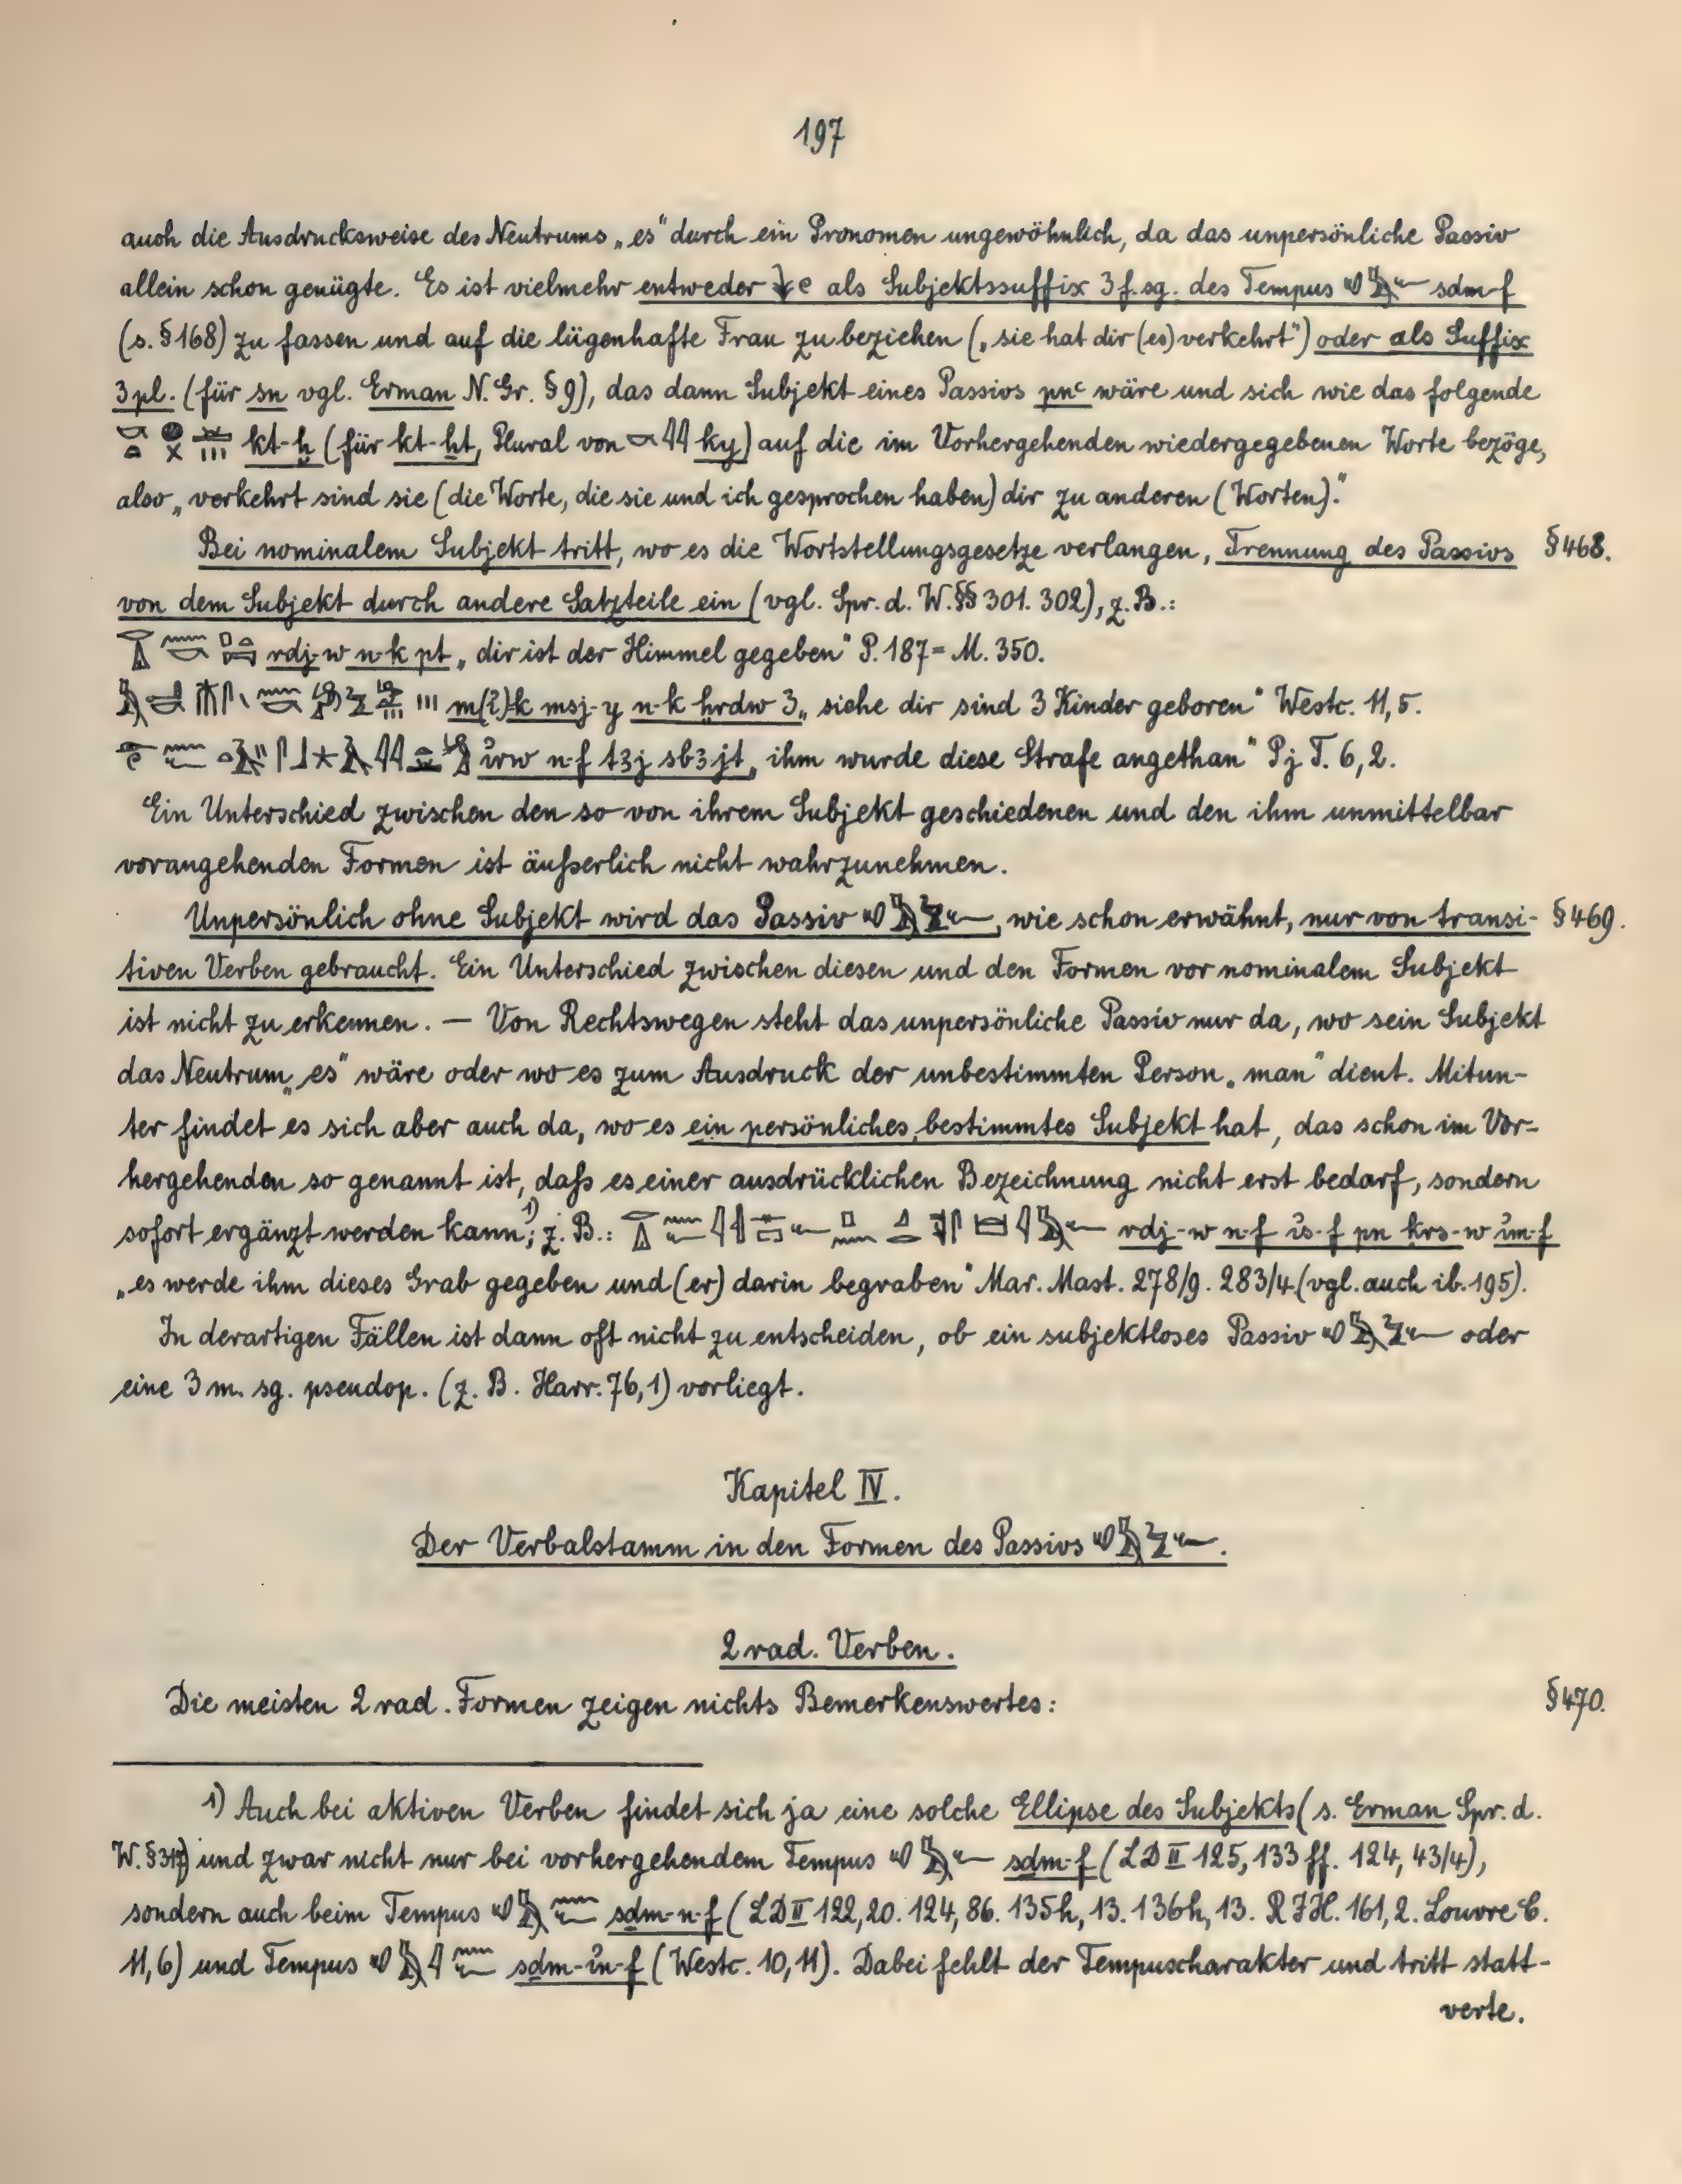 197
auch die Ausdrucksweise des Neutrums „es“ durch ein Pronomen ungewöhnlich, da das unpersönliche Passiv
allein schon genügte. Es ist vielmehr entweder als Subjektssuffix 3 f. sg. des Tempus sdm-f
(s. § 168) zu fassen und auf die lügenhafte Frau zu beziehen („sie hat dir (es) verkehrt“) oder als Suffix
3 pl. (für sn vgl. Erman N. Gr. § 9), das dann Subjekt eines Passivs pnꜥ wäre und sich wie das folgende
kt-ḫ (für kt-ḫt, Plural von ky) auf die im Vorhergehenden wiedergegebenen Worte bezöge,
also „verkehrt sind sie (die Worte, die sie und ich gesprochen haben) dir zu anderen (Worten).“
Bei nominalem Subjekt tritt, wo es die Wortstellungsgesetze verlangen, Trennung des Passivs § 468.
von dem Subjekt durch andere Satzteile ein (vgl. Spr. d. W. §§ 301. 302), z. B.:
rdj-w n-k pt „dir ist der Himmel gegeben“ P. 187 = M. 350.
m(ꜣ)-k msj-y n-k ẖrdw 3 „siehe dir sind 3 Kinder geboren“ Westc. 11, 5.
ꞽrw n-f tꜣj sbꜣjt „ihm wurde diese Strafe angethan“ Pj T. 6, 2.
Ein Unterschied zwischen den so von ihrem Subjekt geschiedenen und den ihm unmittelbar
vorangehenden Formen ist äußerlich nicht wahrzunehmen.
Unpersönlich ohne Subjekt wird das Passiv , wie schon erwähnt, nur von transi- § 469.
tiven Verben gebraucht. Ein Unterschied zwischen diesen und den Formen vor nominalem Subjekt
ist nicht zu erkennen. — Von Rechtswegen steht das unpersönliche Passiv nur da, wo sein Subjekt
das Neutrum „es“ wäre oder wo es zum Ausdruck der unbestimmten Person „man“ dient. Mitun-
ter findet es sich aber auch da, wo es ein persönliches, bestimmtes Subjekt hat, das schon im Vor-
hergehenden so genannt ist, daß es einer ausdrücklichen Bezeichnung nicht erst bedarf, sondern
sofort ergänzt werden kann¹⁾; z. B.: rdj-w n-f ꞽs-f pn ḳrs-w ꞽm-f
„es werde ihm dieses Grab gegeben und (er) darin begraben“ Mar. Mast. 278/9. 283/4 (vgl. auch ib. 195).
In derartigen Fällen ist dann oft nicht zu entscheiden, ob ein subjektloses Passiv oder
eine 3 m. sg. pseudop. (z. B. Harr. 76, 1) vorliegt.
Kapitel IV.
Der Verbalstamm in den Formen des Passivs .
2 rad. Verben.
Die meisten 2 rad. Formen zeigen nichts Bemerkenswertes: § 470.
1) Auch bei aktiven Verben findet sich ja eine solche Ellipse des Subjekts (s. Erman Spr. d.
W. § 317) und zwar nicht nur bei vorhergehendem Tempus sdm-f (LD II 125, 133 ff. 124, 43/4),
sondern auch beim Tempus sdm-n-f (LD II 122, 20. 124, 86. 135h, 13. 136h, 13. RJH. 161, 2. Louvre C.
11, 6) und Tempus sdm-ꞽn-f (Westc. 10, 11). Dabei fehlt der Tempuscharakter und tritt statt-
verte.